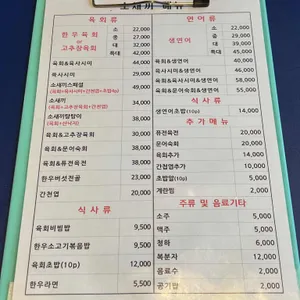 소새끼 메뉴
육회류
한우육회
or
고추장육회
소 22,000
중 27,000
대 32,000
특대 42,000
육회&육사시미 44,000
육사시미 29,000
소새끼스페셜 49,000
소새끼 34,000
소새끼탕탕이 38,000
(육회+산낙지)
육회&고추장육회 34,000
육회&문어숙회 38,000
육회&튜전육전 38,000
한우버섯전골 23,000
간천엽 20,000
식사류
육회비빔밥 9,500
한우소고기볶음밥 9,500
육회초밥(10p) 12,000
한우라면 5,500
연어류
생연어
소 22,000
중 29,000
대 39,000
특대 45,000
육회&생연어
육사시미&생연어
육회&육사시미&생연어
문어숙회&생연어
육회&문어숙회&생연어 55,000
식사류
생연어초밥(10p) 14,000
추가메뉴
튜전육전 20,000
문어숙회 20,000
육회추가 14,000
간천엽추가 10,000
초밥밥(10p) 5,000
계란찜 2,000
주류 및 음료기타
소주 5,000
맥주 5,000
청하 6,000
복분자 12,000
음료수 2,000
공기밥 2,000